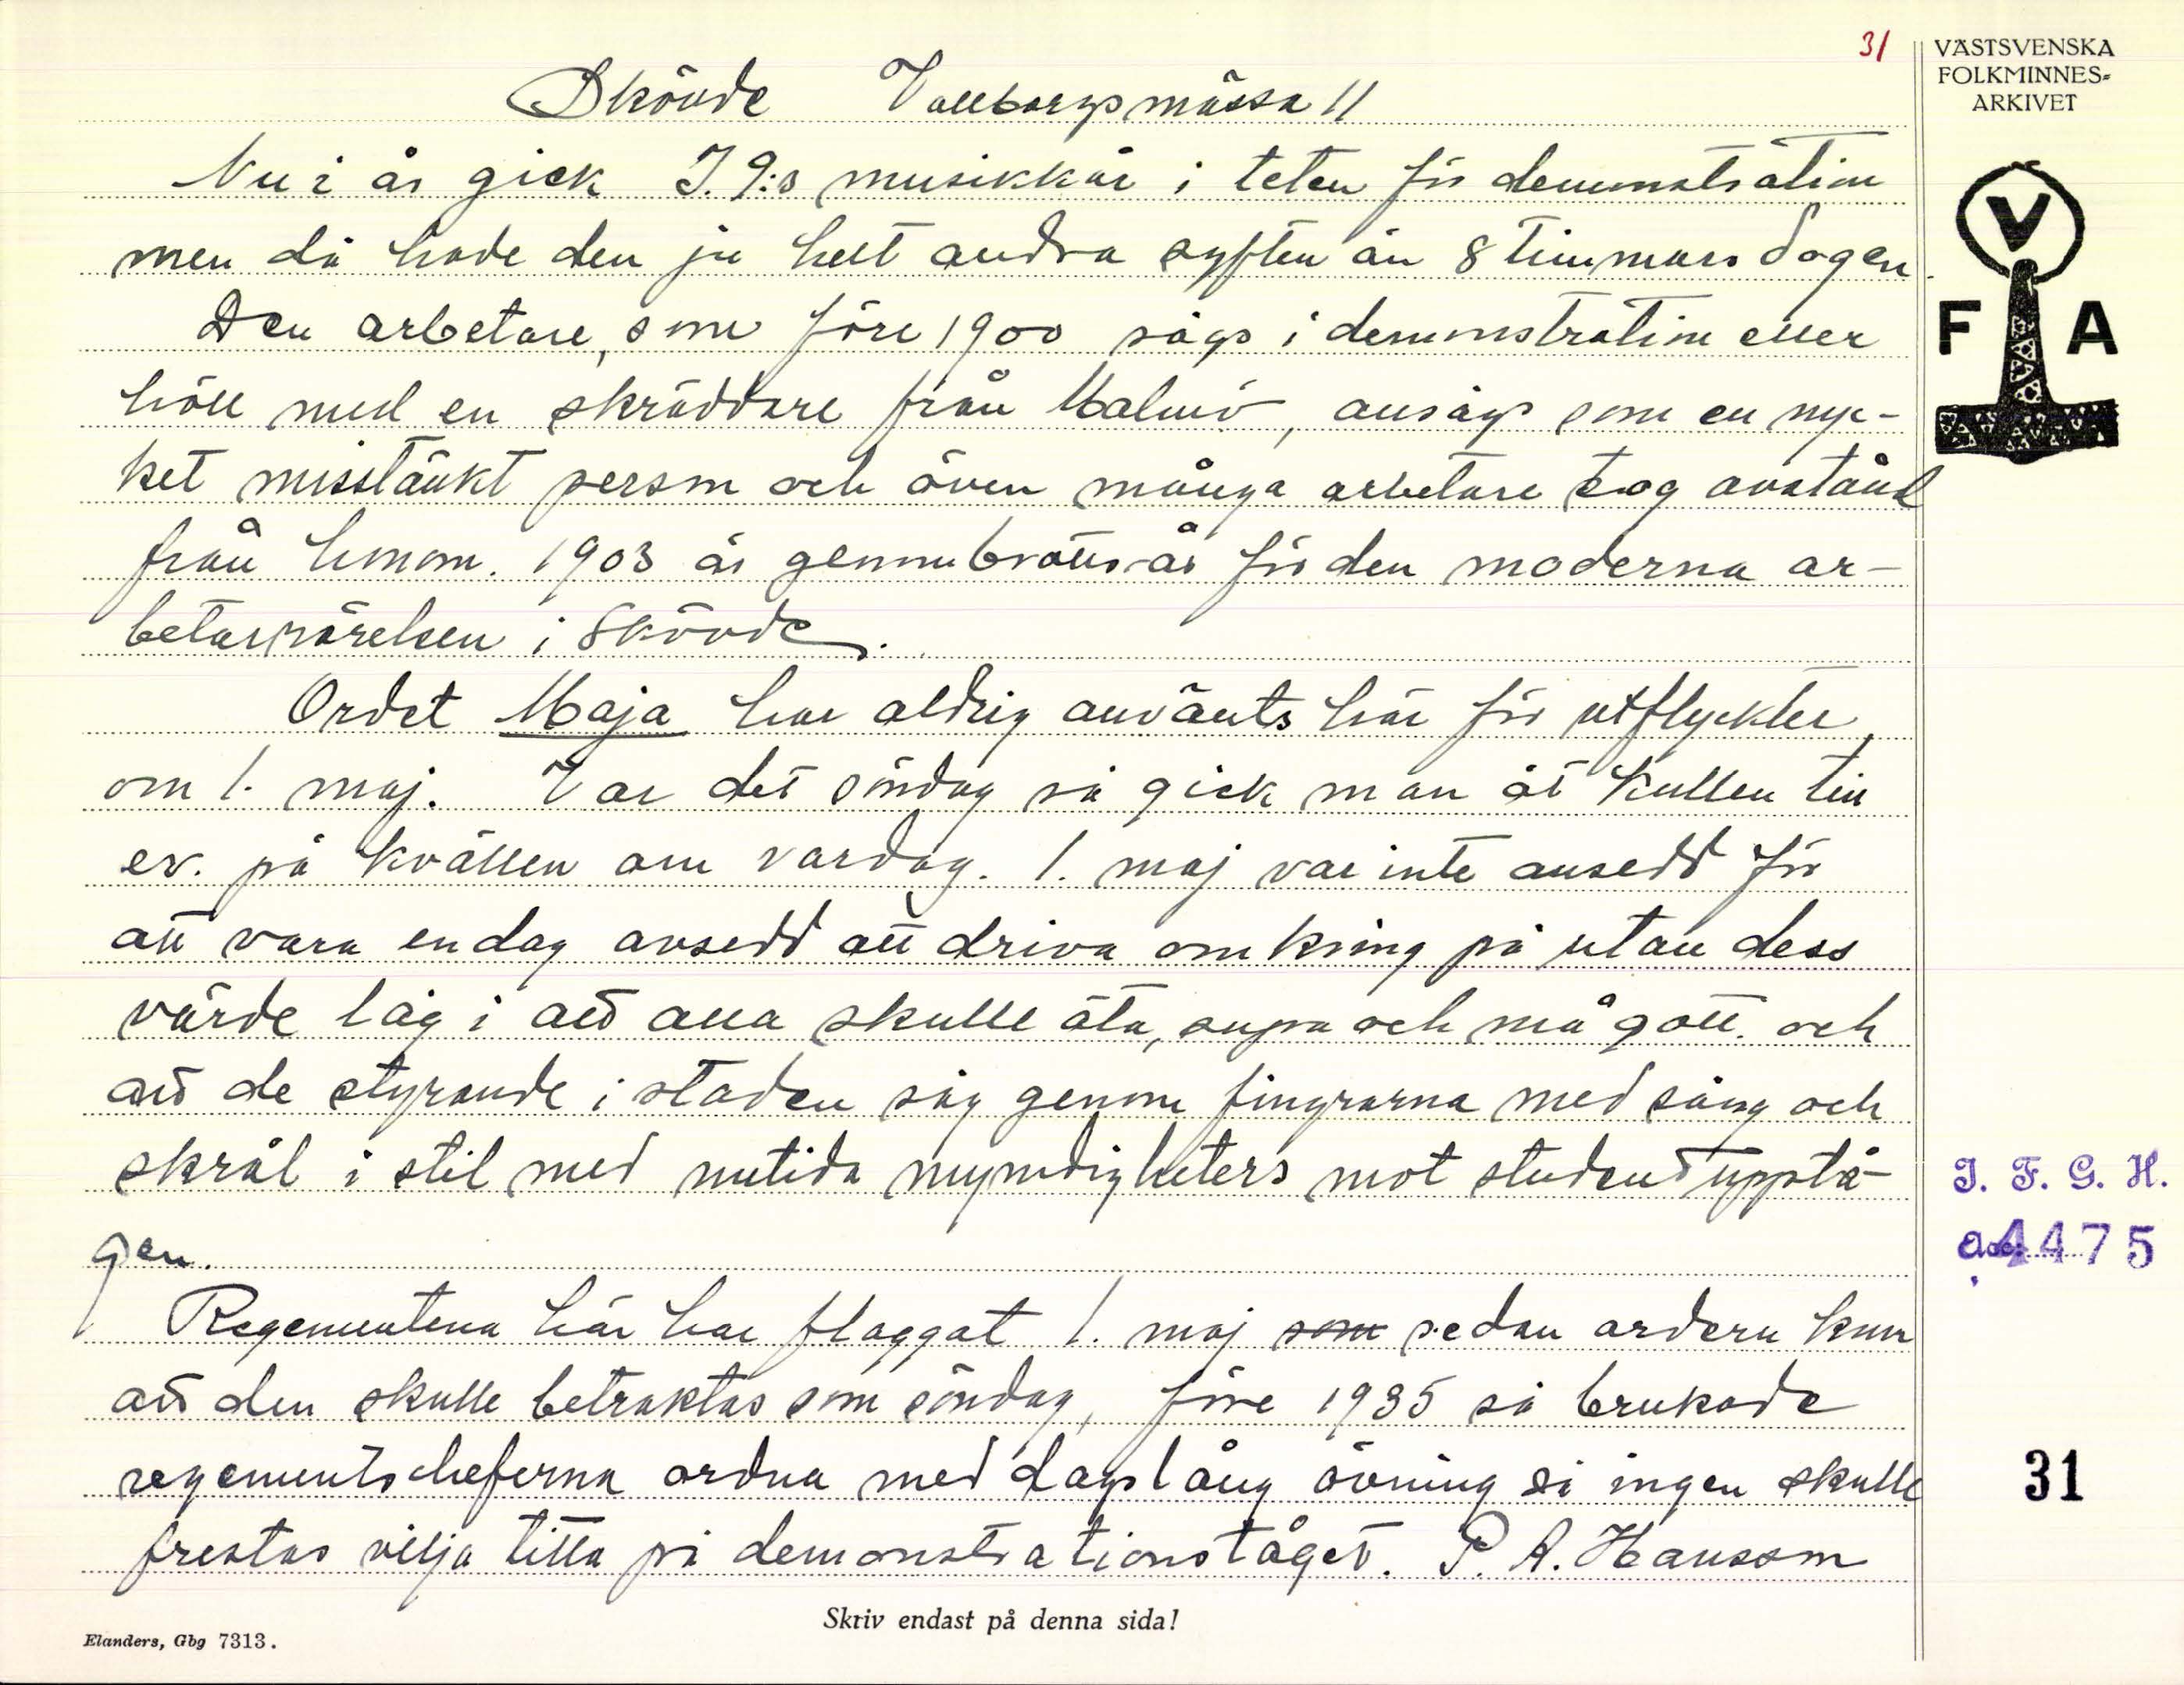 31
VÄSTSVENSKA
FOLKMINNES-
ARKIVET
Skövde Valborgsmässa 11
Nu i år gick I.9:s musikkår i teten för demonstration
men då hade den ju helt andra syften än 8 timmars dagen.
Den arbetare, som före 1900 sågs i demonstration eller
höll med en skräddare från Malmö, ansågs som en myc-
ket misstänkt person och även många arbetare tog avstånd
från honom. 1903 är genombrotts år för den moderna ar-
betarrörelsen i Skövde.
Ordet Maja har aldrig använts här för utflykter
om 1. maj. Var det söndag så gick man åt Kullen till
ev. på kvällen om vardag. 1. maj var inte ansedd för
att vara en dag avsedd att driva omkring på utan dess
värde låg i att alla skulle äta, supa och må gott och
att de styrande i staden såg genom fingrarna med sång och
skrål i stil med nutida myndigheters mot studentupptå-
gen.
Regementena här har flaggat 1. maj som sedan ordern kom
att den skulle betraktas som söndag, före 1935 så brukade
regementscheferna ordna med dagslång övning så ingen skulle
frestas vilja titta på demonstrationståget. P. A. Hansson
V
F A
I. F. G. H.
acc. 4475
31
Skriv endast på denna sida!
Elanders, Gbg 7313.